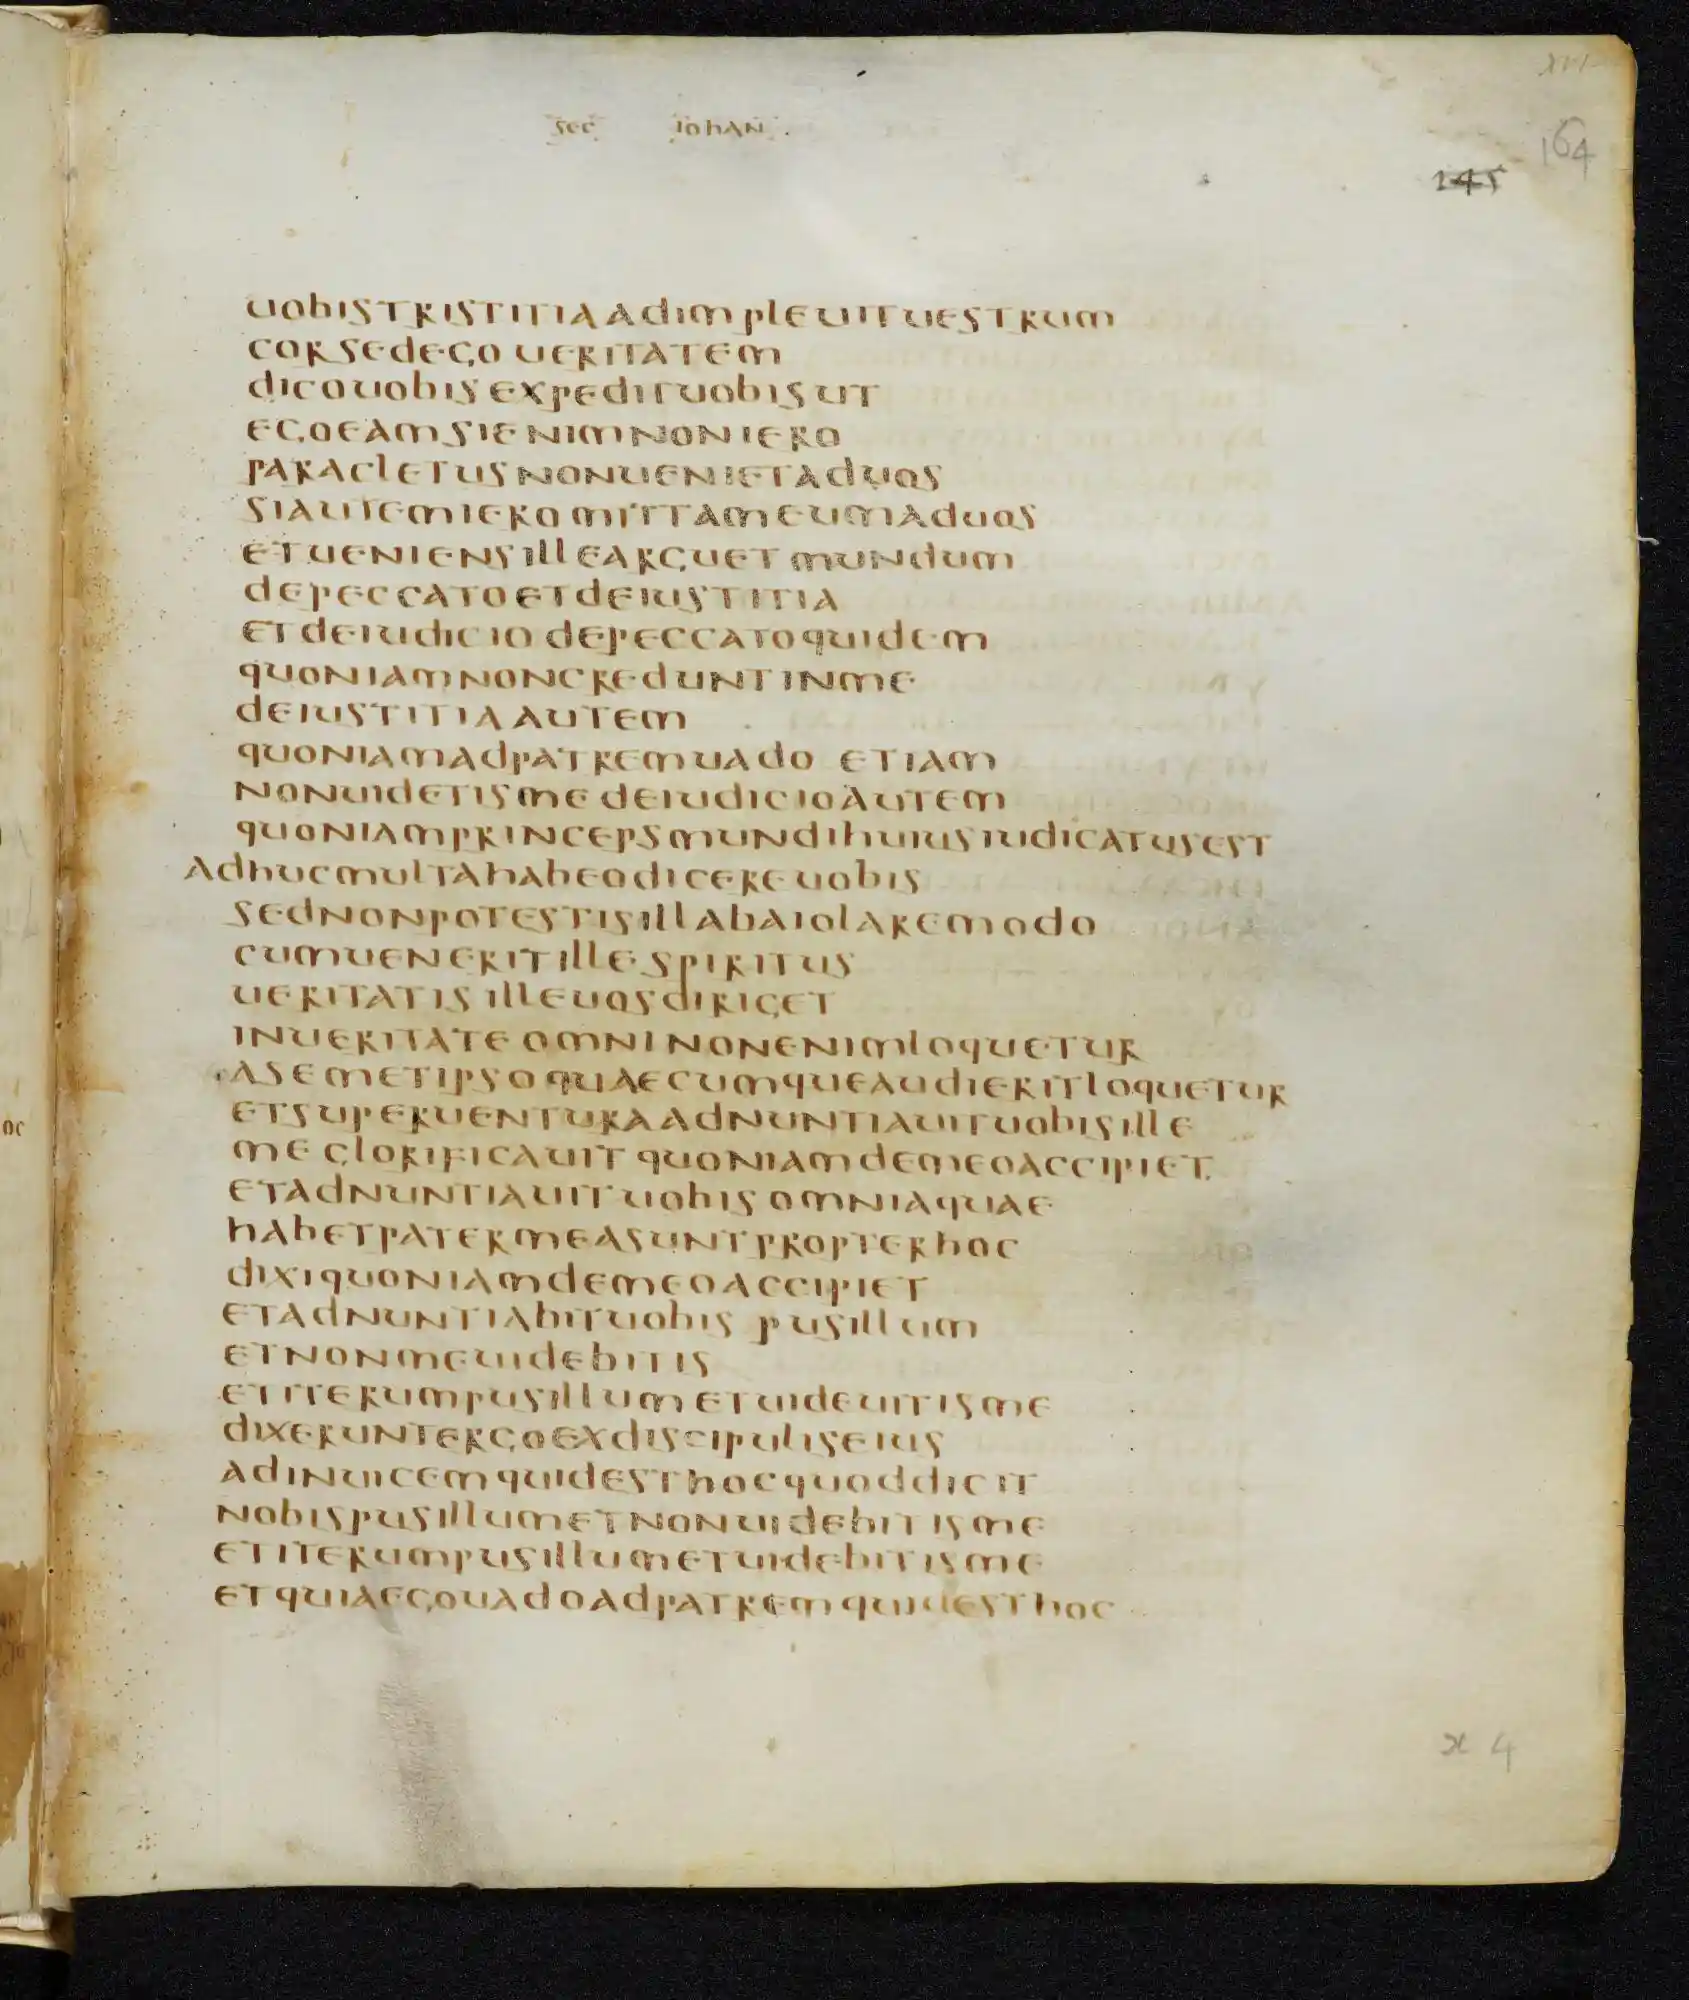 XVI
sec iohan .
164
145
uobistristitiaadimpleuituestrum
corsedego ueritatem
dicouobis expedituobis ut
egoeamsienimnoniero
paracletusnonuenietaduos
siautemieromittameumaduos
etueniensillearguet mundum
depeccatoetdeiustitia
etdeiudicio depeccatoquidem
quoniamnoncreduntinme
deiustitiaautem
quoniamadpatremuado etiam
nonuidetisme deiudicioautem
quoniamprincepsmundihuiusiudicatusest
adhucmultahabeodicereuobis
sednonpotestisillabaiolaremodo
cumuenerititlle spiritus
ueritatis illeuosdiriget
inueritate omninonenimloquetur
asemetipsoquaecumqueaudieritloquetur
etsuperuenturaadnuntiauituobisille
me glorificauit quoniamdemeoaccipiet
etadnuntiauituobis omniaquae
habetpatermeasuntpropterhoc
dixiquoniamdemeoaccipiet
etadnuntiabituobis pusillum
etnonmeuidebitis
etiterumpusillumetuideuitisme
dixeruntergoexdiscipuliseius
adinuicemquidesthocquoddicit
nobispusillumetnonuidebitisme
etiterumpusillumetuidebitisme
etquiaegouadoadpatremquidesthoc
x 4
oc